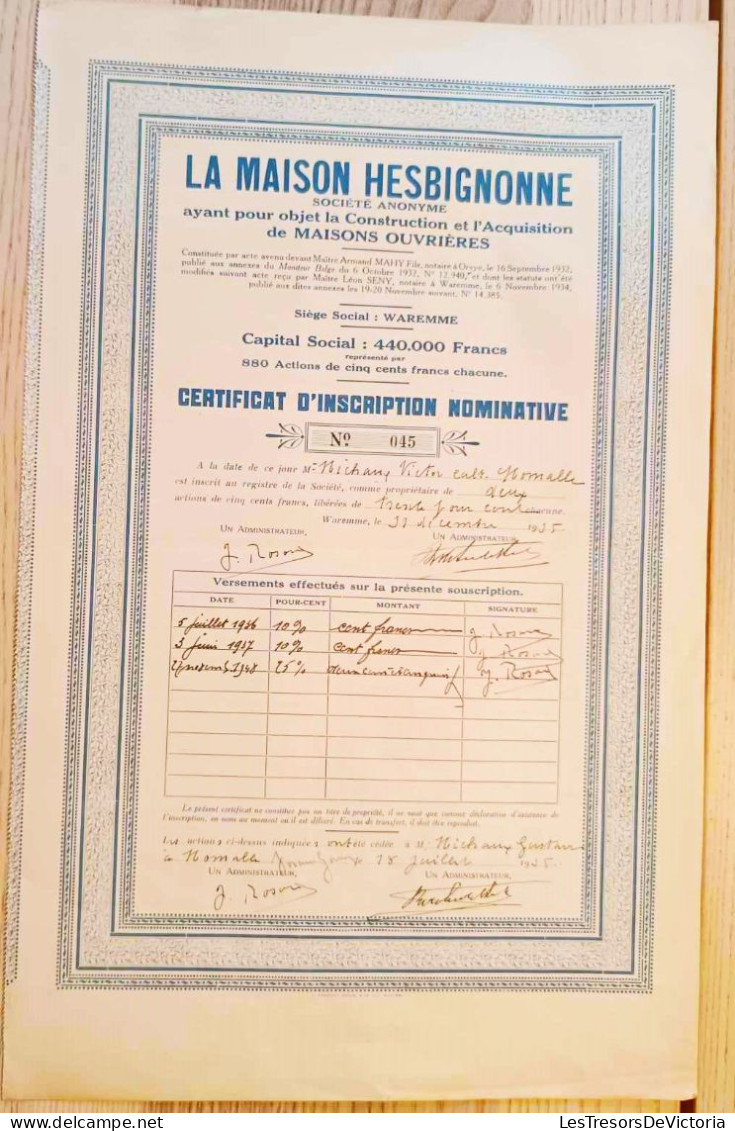 LA MAISON HESBIGNONNE
SOCIÉTÉ ANONYME
ayant pour objet la Construction et l'Acquisition
de MAISONS OUVRIÈRES
Constituée par acte avenu devant Maître Armand MAHY Fils, notaire à Oreye, le 16 Septembre 1932,
publié aux annexes du Moniteur Belge du 6 Octobre 1932, N° 12.940, et dont les statuts ont été
modifiés suivant acte reçu par Maître Léon SENY, notaire à Waremme, le 6 Novembre 1934,
publié aux dites annexes les 19-20 Novembre suivant, N° 14.385.
Siège Social : WAREMME
Capital Social : 440.000 Francs
représenté par
880 Actions de cinq cents francs chacune.
CERTIFICAT D'INSCRIPTION NOMINATIVE
N° 045
A la date de ce jour Mr Michaux Victor cult. Momalle
est inscrit au registre de la Société, comme propriétaire de deux
actions de cinq cents francs, libérées de trente pour cent
Waremme, le 31 décembre 1935
UN ADMINISTRATEUR, UN ADMINISTRATEUR,
J. Rosoux
Versements effectués sur la présente souscription.
DATE POUR-CENT MONTANT SIGNATURE
5 juillet 1936 10% cent francs J. Rosoux
3 juin 1937 10% cent francs J. Rosoux
25% J. Rosoux
Le présent certificat ne constitue pas un titre de propriété, il ne vaut que comme déclaration d'existence de
l'inscription, en nom au moment où il est délivré. En cas de transfert, il doit être reproduit.
Les actions ci-dessus indiquées ont été cédées à M. Michaux Gustave
à Momalle 18 juillet
UN ADMINISTRATEUR, UN ADMINISTRATEUR,
J. Rosoux
LesTresorsDeVictoria